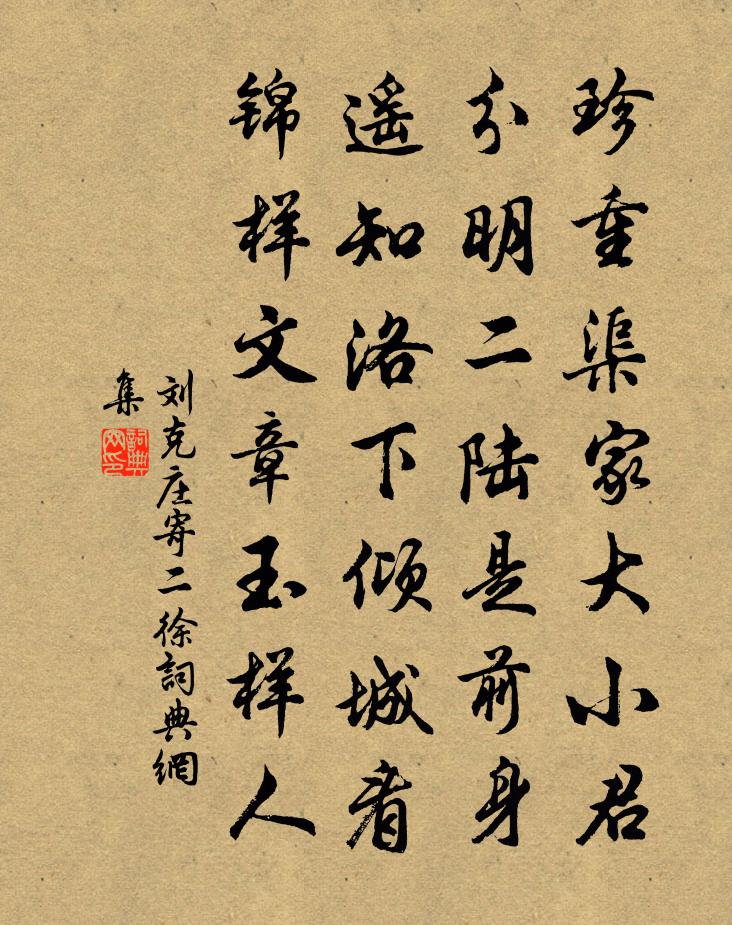 珍重渠家大小君
分明二陆是前身
遥知洛下倾城看
锦样文章玉样人
刘克庄寄二徐詞典網
集
詞典網印